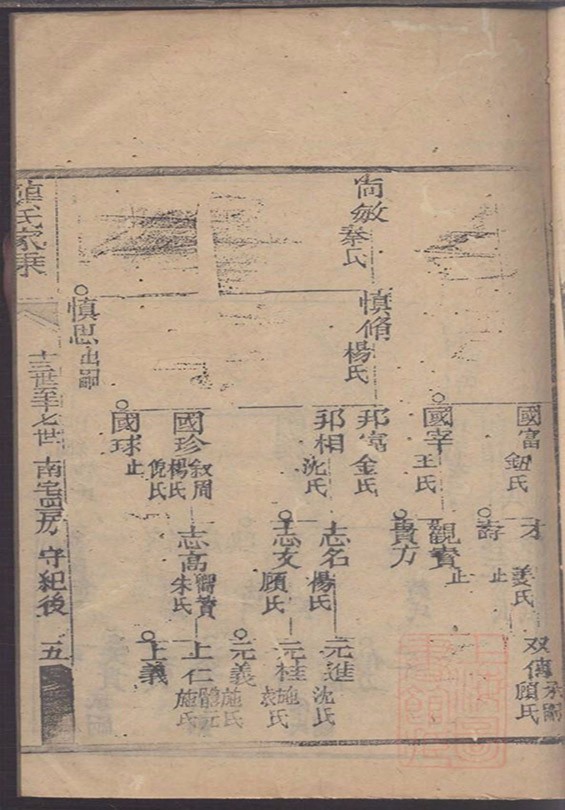 尚敏 蔡氏
慎脩 楊氏
慎思 出嗣
國富 鈕氏
國宰 王氏
邦寧 金氏
邦相 沈氏
國珍 叙周 楊氏 倪氏
國球 止
才 姜氏
壽 止
觀賓 止
貴方
志名 楊氏
志友 顧氏
志高 朱氏
双傳 承嗣 顧氏
元進 沈氏
元桂 施氏 袁氏
元義 施氏
上仁 施氏
上義
氏家乗
十三世至十七世 南宅四房 守紀後
五